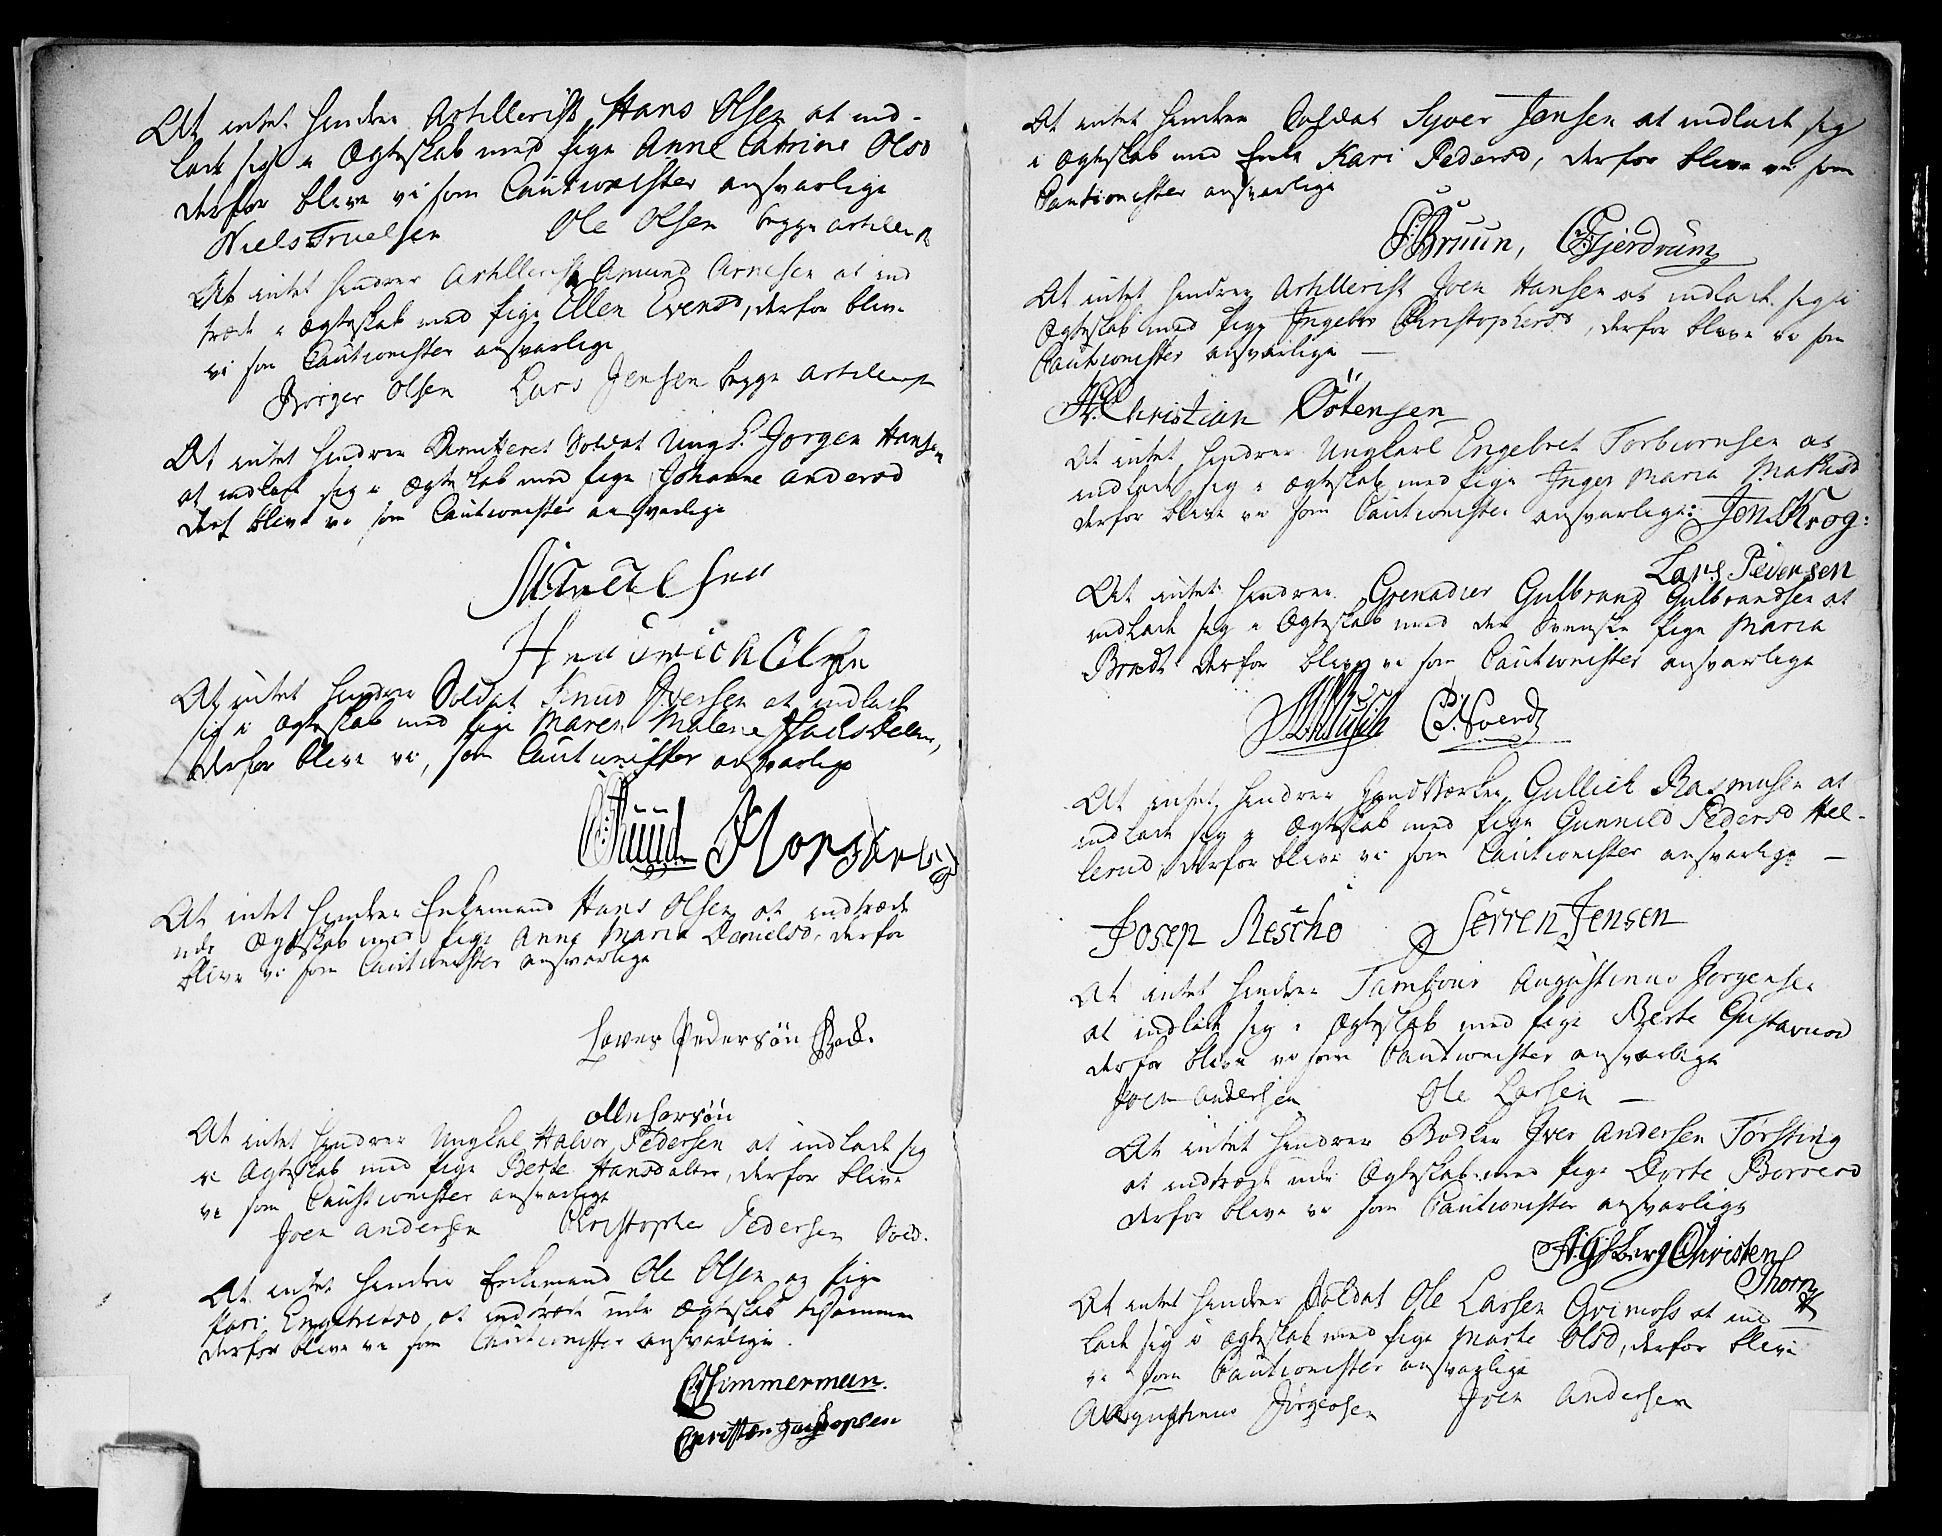 At intet hindrer Artillerist Hans Olsen at ind-
lade sig i Ægteskab med Pige Anne Catrine Olsd
derfor blive vi som Cautionister ansvarlige
Niels Truelsen Ole Olsen begge Artillerist
At intet hindrer Artillerist Amund Arnesen at ind
træde i Ægteskab med Pige Ellen Evensd, derfor blive
vi som Cautionister ansvarlige
Børger Olsen Lars Jensen begge Artillerist
At intet hindrer Soldat Ungk. Jørgen Hansen
at indlade sig i Ægteskab med Pige Johanne Andersd
derf blive vi som Cautionister ansvarlige
Hendrich Olsen
At intet hindrer Soldat Knud Iversen at indlade
sig i Ægteskab med Pige Maren Malene
derfor blive vi, som Cautionister ansvarlige
Ruud
At intet hindrer Enkemand Hans Olsen at indtræde
udi Ægteskab med Pige Anne Maria Danielsd, derfor
blive vi som Cautionister ansvarlige
Lavers Pedersøn
olle larsøn
At intet hindrer Ungkal Halvor Pedersen at indlade sig
i Ægteskab med Pige Berte Hansdatter, derfor blive
vi som Cautionister ansvarlige
Joen Andersen Christopher Pedersen Sold.
At intet hindrer Enkemand Ole Olsen og Pige
Kari Engebretsd, at indtræde udi Ægteskab tilsammen
derfor blive vi som Cautionister ansvarlige.
Zimmerman.
Christian
At intet hindrer Soldat Syver Jensen at indlade sig
i Ægteskab med Enke Kari Pedersd, derfor blive vi som
Cautionister ansvarlige
Bruun, Gjerdrum
At intet hindrer Artillerist Joen Hansen at indlade sig i
Ægteskab med Pige Ingebor Christophersd, derfor blive vi som
Cautionister ansvarlige —
Christian Östensen
At intet hindrer Ungkarl Engebret Torbiørnsen at
indlade sig i Ægteskab med Pige Inger Maria Mathisd
derfor blive vi som Cautionister ansvarlige: Jens Krog:
Lars Pedersen
At intet hindrer Grenadier Gulbrand Gulbrandsen at
indlade sig i Ægteskab med den Svenske Pige Maria
Bradt derfor blive vi som Cautionister ansvarlige
At intet hindrer Handtværker Gullick Rasmusen at
indlade sig i Ægteskab med Pige Gunnild Pedersd Hel-
lerud, derfor blive vi som Cautionister ansvarlige —
Josep Rescho Sørren Jensen
At intet hindrer Tambour Augustinus Jørgensen
at indlade sig i Ægteskab med Pige Berte Gustavusd
derfor blive vi som Cautionister ansvarlige
Joen Andersen Ole Larsen —
At intet hindrer Bødker Iver Andersen Torsting
at indtræde udi Ægteskab med Pige Dorte
derfor blive vi som Cautionister ansvarlige
Christen
Thorn
At intet hindrer Soldat Ole Larsen Grimoss at ind
lade sig i Ægteskab med Pige Marte Olsd, derfor blive
vi som Cautionister ansvarlige
Augustinus Jørgensen Joen Andersen